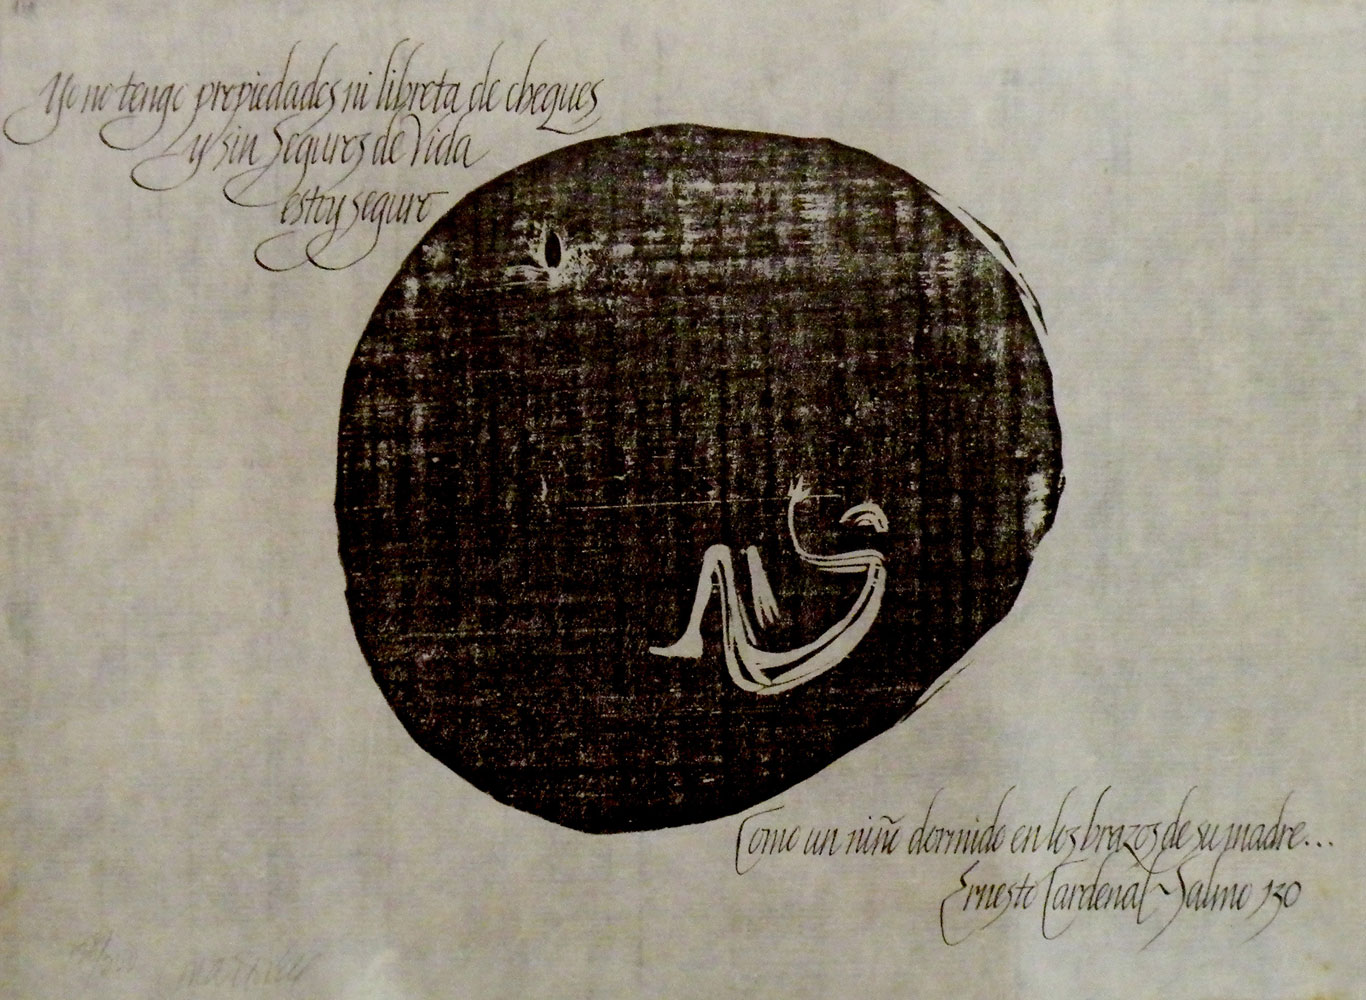 Yo no tengo propiedades ni libreta de cheques
y sin Seguros de Vida
estoy seguro
Como un niño dormido en los brazos de su madre...
Ernesto Cardenal ~ Salmo 130